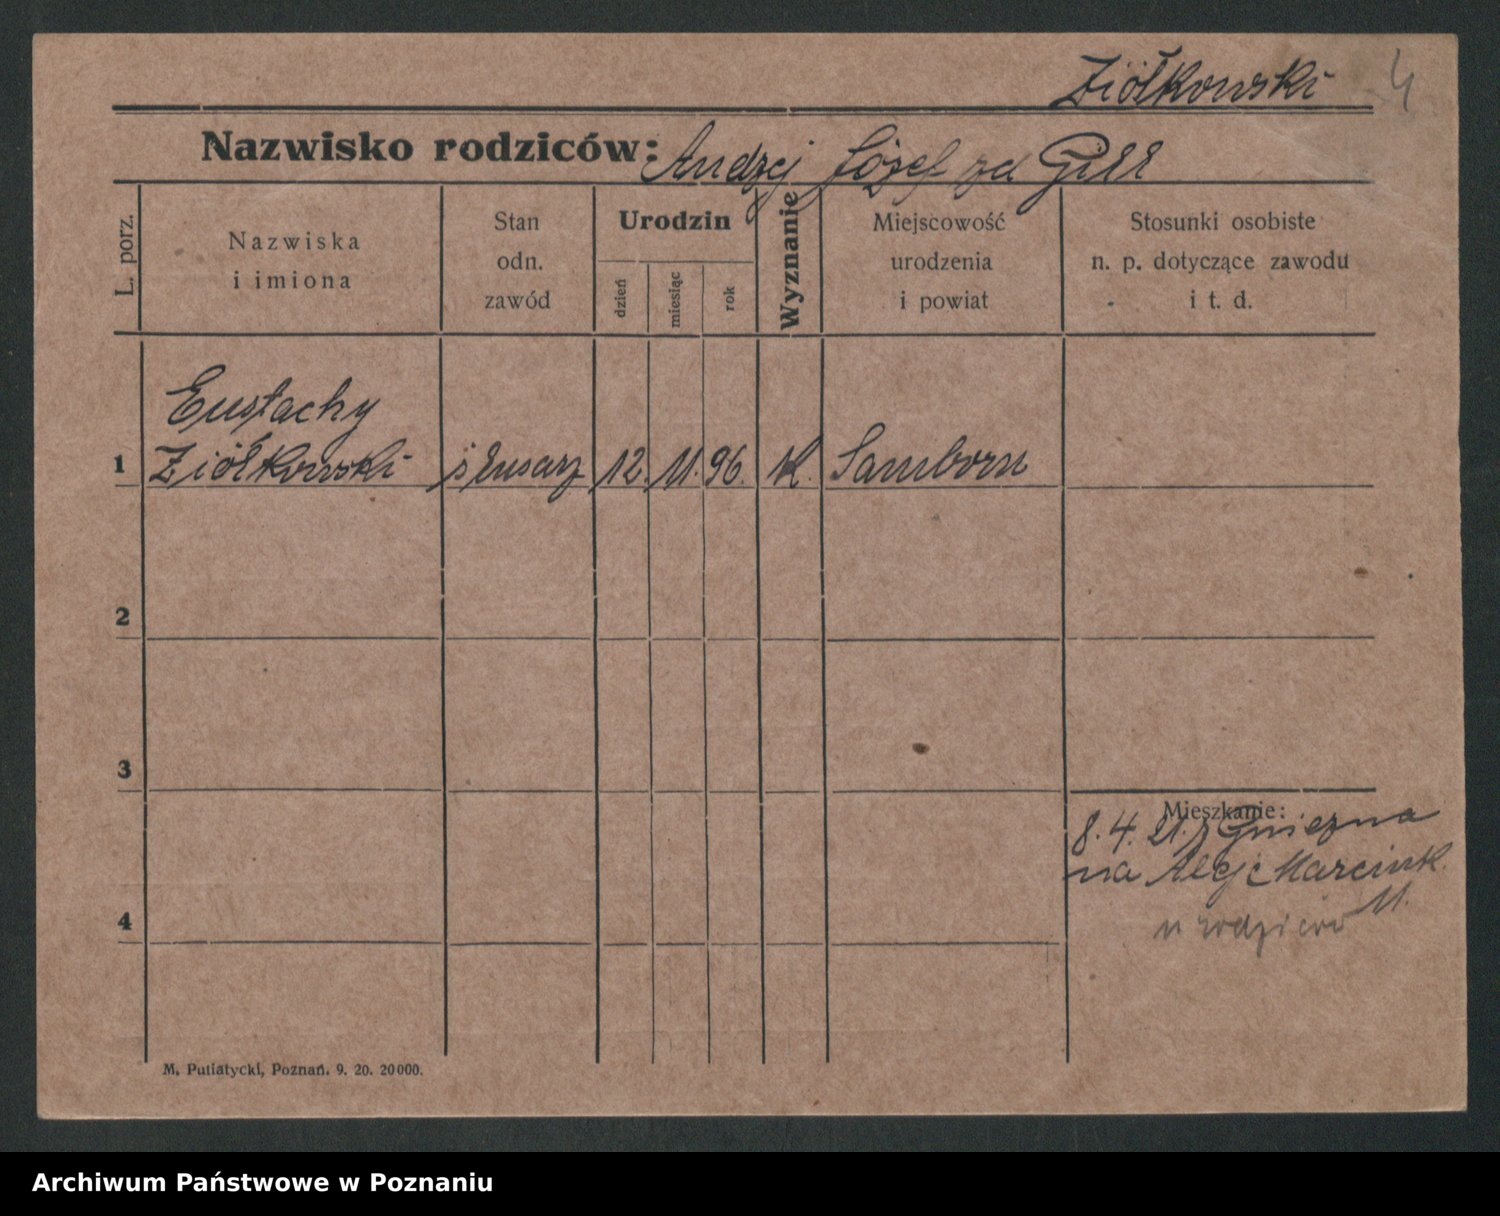 Ziółkowski
4
Nazwisko rodziców: Andrzej Józef zd Gill
L. porz.
Nazwiska
i imiona
Stan
odn.
zawód
Urodzin
dzień
miesiąc
rok
Wyznanie
Miejscowość
urodzenia
i powiat
Stosunki osobiste
n. p. dotyczące zawodu
i t. d.
Eustachy
1 Ziółkowski ślusarz 12. 11. 96. kl. Samborn
2
3
Mieszkanie:
8. 4. 21. z Gniezna
na Alej. Marcink.
11.
u rodziców
4
M. Putiatycki, Poznań. 9. 20. 20000.
Archiwum Państwowe w Poznaniu